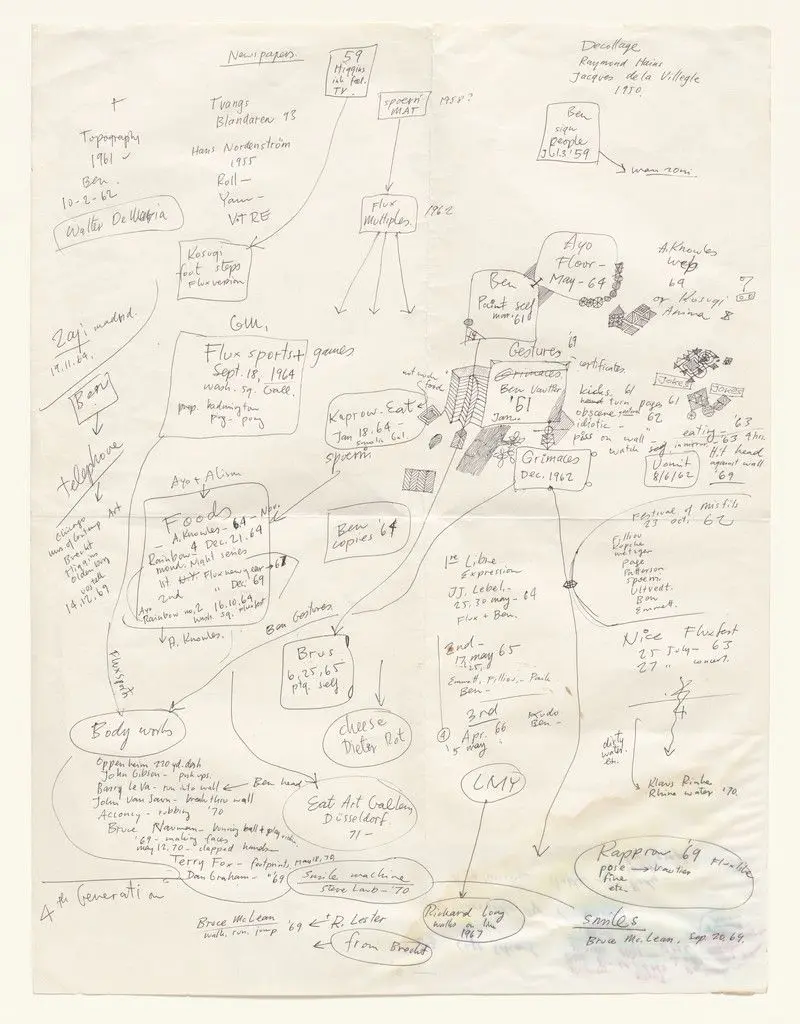 Newspapers.
59
Higgins
TV.
spoerri
MAT
1958?
Decollage
Raymond Hains
Jacques de la Villegle
1950.
Ben
sign
people
Jl 13 '59
manzoni
+
Topography
1961
Ben.
10-2-62
Walter De Maria
Tvangs
Blandaren 93
Hans Nordenström
1955
Roll —
Yam —
VTRE
Flux
Multiples.
1962
Kosugi
foot steps
Flux version
Ayo
Floor -
May - 64
Ben
Paint self
'61
A. Knowles
web
64
or Kosugi
Anima 8
?
Zaj madrid.
19.11.69.
Ben
telephone
Chicago
mus of contemp Art
Brecht
Higgins
oldenburg
vostell
14.12.69
G.M.
Flux sports + games
Sept. 18, 1964
wash. sq. Gall.
prep. badminton
ping - pong
Kaprow - Eat
Jan 18.64 -
spoerri
food
Gestures '61
Grimaces
Ben Vautier
'61
Jan.
certificates.
kicks. 61
turn pages 61
obscene
62
idiotic -
piss on wall -
watch
Jokes
Jones
eating - '63
in mirror - '63 4 hrs.
Hit head
against wall
'69
Vomit
8/6/62
Grimaces
Dec. 1962
Ayo + Alison
Foods
A. Knowles - 64 - Nov.
Rainbow - 4 Dec. 21. 64
mond. Night series
1st Flux new year → 67
2nd " Dec. 69
Ayo
Rainbow no. 2 16.10.69
wash. sq. fluxfest
A. Knowles.
Ben
copies '64
Festival of misfits
23 oct. 62
Filliou
Kopcke
metzger
page
Patterson
spoerri
Ultvedt.
Ben
Emmett.
1re Libre
Expression
JJ. Lebel, -
25.30 may - 64
Flux + Ben.
2nd -
17, may 65
25.
Emmett, Filliou, -
Ben -
3rd
Apr. 66
5 may
Kudo
Ben -
4
Nice Fluxfest
25 July - 63
27 " concert.
dirty
water.
etc.
Klaus Rinke
Rhine water '70.
Ben Gestures.
Flux sports
Brus
6, 25, 65
ptg. self
Body works
Oppenheim 220 yd. dash
John Gibson - push ups.
Barry Le Va - run into wall ← Ben head
John Van Saun - break thru wall
Acconcy - rubbing '70
Bruce Nauman -
'69 - making faces
may 12. 70 - clapped hands
Terry Fox - footprints, May 18, 70
Dan Graham - '69
cheese
Dieter Rot
Eat Art Gallery
Düsseldorf
71 -
smile machine
Steve Laub - '70
LMY
Richard Long
walks on line
1967
Rapprow '69 Fluxlibe
pose → vautier
fine
etc.
4th Generation
Bruce McLean
walk. run. jump '69
R. Lester
from Brecht
smiles
Bruce McLean. Sep. 20, 69.